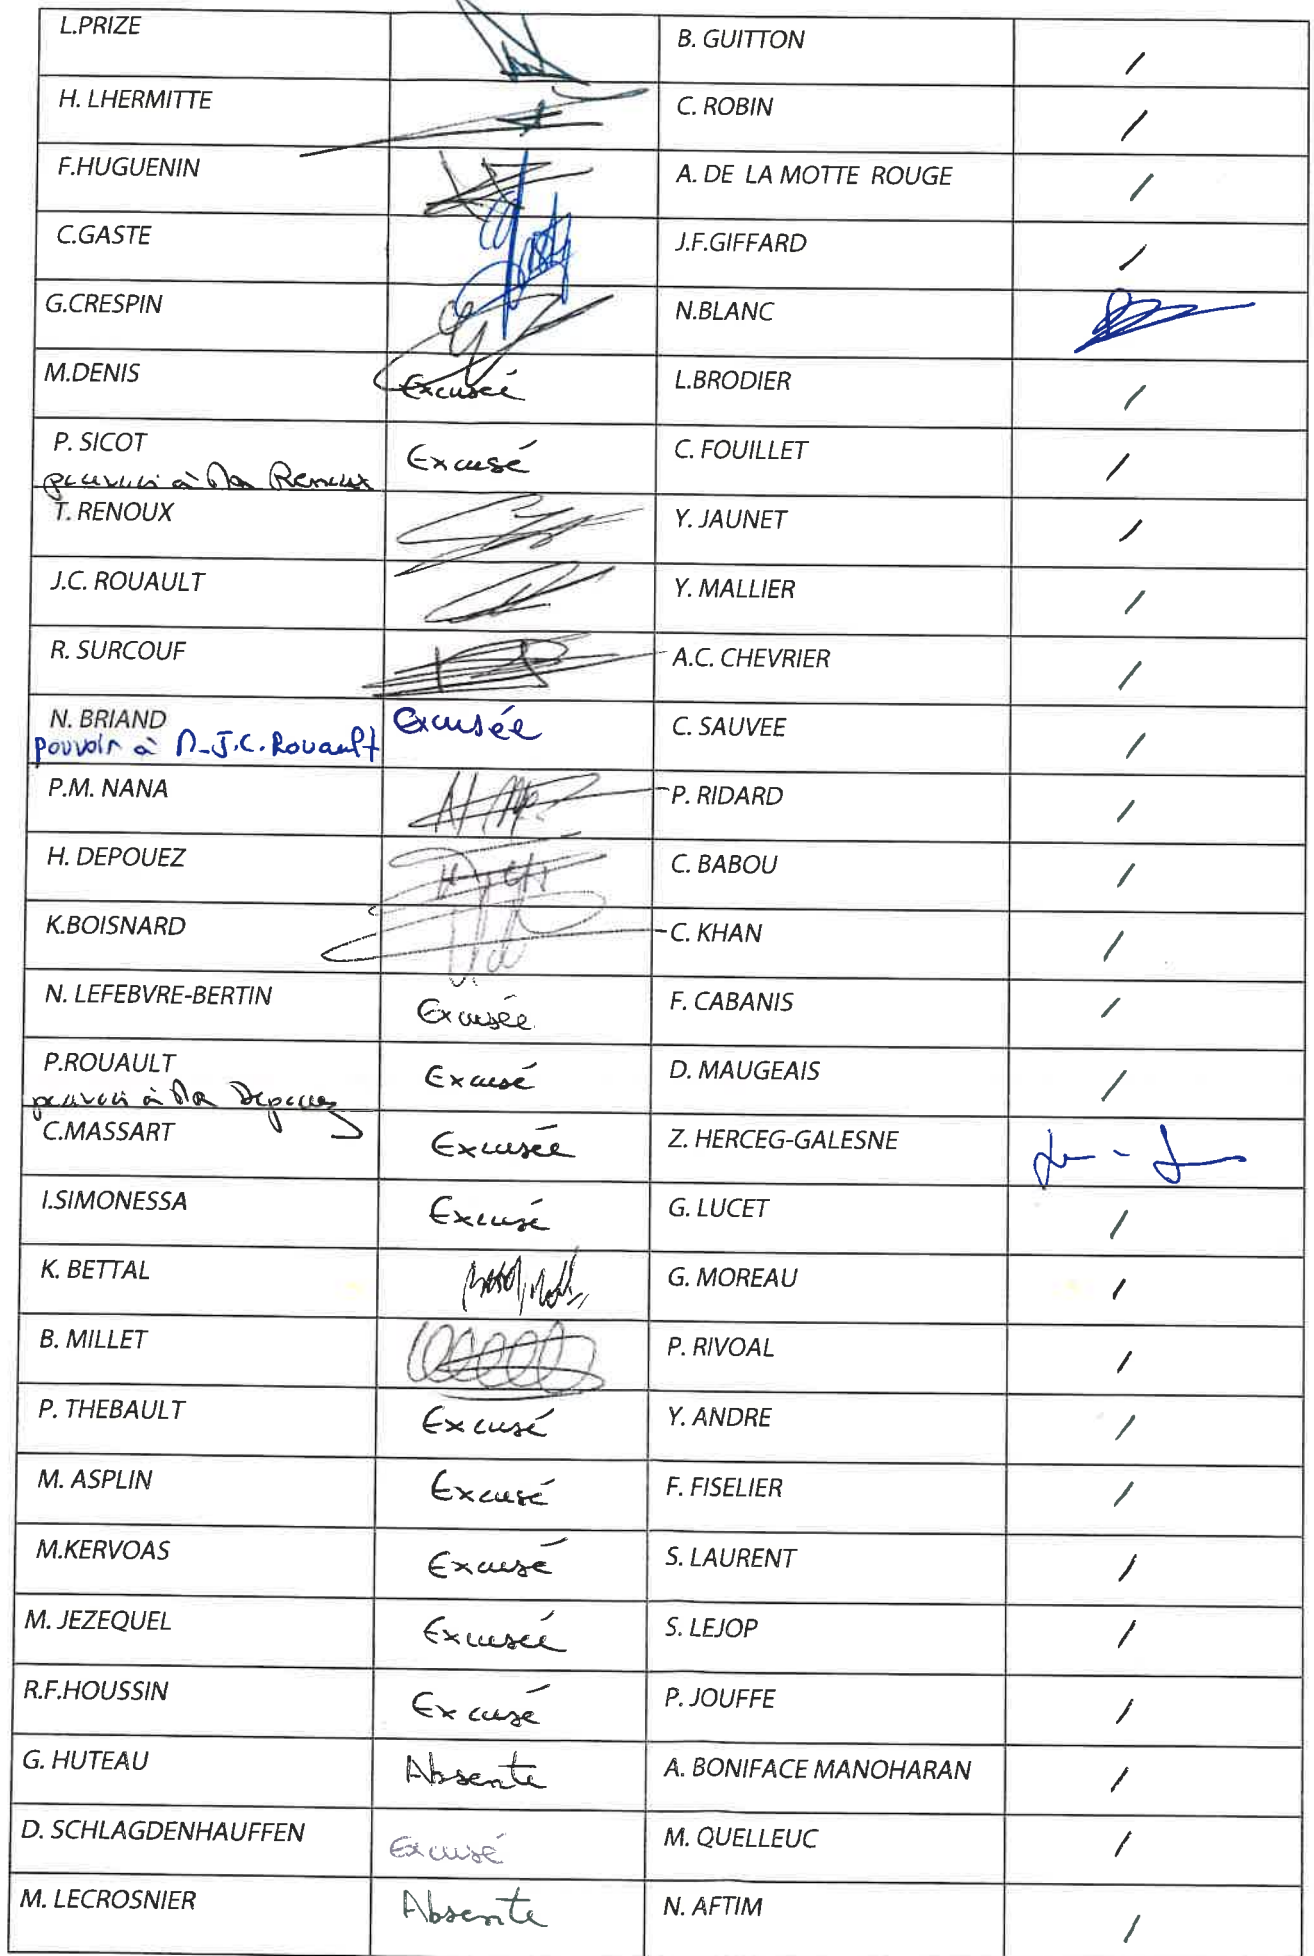 L.PRIZE B. GUITTON /
H. LHERMITTE C. ROBIN /
F.HUGUENIN A. DE LA MOTTE ROUGE /
C.GASTE J.F.GIFFARD /
G.CRESPIN N.BLANC
M.DENIS Excusée L.BRODIER /
P. SICOT Excusé C. FOUILLET /
pouvoir à Mr Renoux
T. RENOUX Y. JAUNET /
J.C. ROUAULT Y. MALLIER /
R. SURCOUF A.C. CHEVRIER /
N. BRIAND Excusée C. SAUVEE /
pouvoir à M. J.C. Rouault
P.M. NANA P. RIDARD /
H. DEPOUEZ C. BABOU /
K.BOISNARD C. KHAN /
N. LEFEBVRE-BERTIN Excusée F. CABANIS /
P.ROUAULT Excusé D. MAUGEAIS /
pouvoir à Mr Depouez
C.MASSART Excusée Z. HERCEG-GALESNE
I.SIMONESSA Excusé G. LUCET /
K. BETTAL G. MOREAU /
B. MILLET P. RIVOAL /
P. THEBAULT Excusé Y. ANDRE /
M. ASPLIN Excusé F. FISELIER /
M.KERVOAS Excusé S. LAURENT /
M. JEZEQUEL Excusée S. LEJOP /
R.F.HOUSSIN Excusé P. JOUFFE /
G. HUTEAU Absente A. BONIFACE MANOHARAN /
D. SCHLAGDENHAUFFEN Excusé M. QUELLEUC /
M. LECROSNIER Absente N. AFTIM /